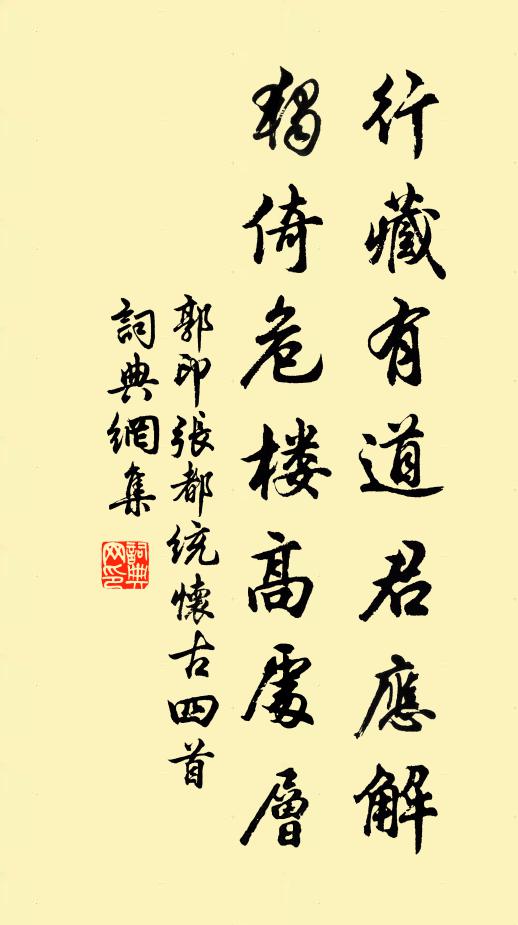 行藏有道君應解
獨倚危楼高處層
郭印張都統懷古四首
詞典網集
詞典网印